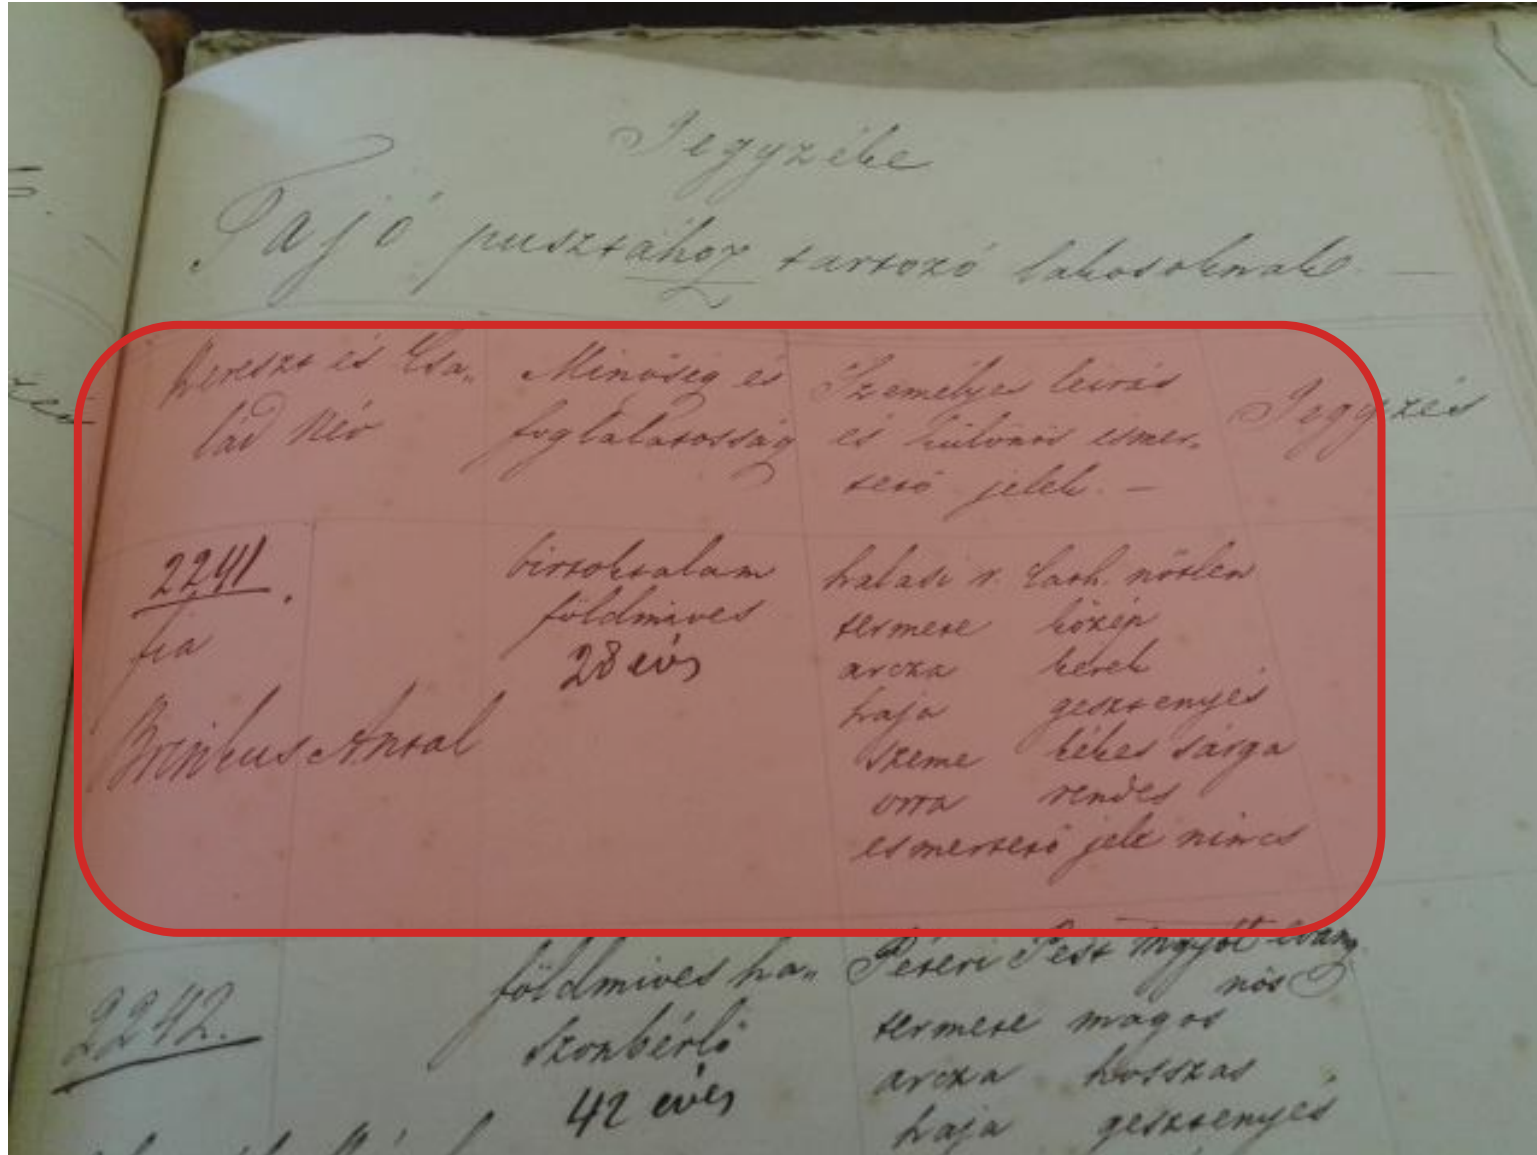 Jegyzéke
Tajó pusztához tartozó lakosoknak. —
Kereszt és Csa„
lád Név
Minőség és
foglalatosság
Személyes leirás
és külőnös esmer„
tető jelek. —
Jegyzés
2241.
fia
Brinkus Antal
birtoktalam
földmives
28 éves
halasi r. kath. nőtlen
termete közép
arcza kerek
haja gesztenyés
szeme kékes sárga
orra rendes
esmertető jele nincs
2242.
földmives ha„
szonbérlő
42 éves
Péteri Pest
nős
termete magos
arcza hosszas
haja gesztenyés